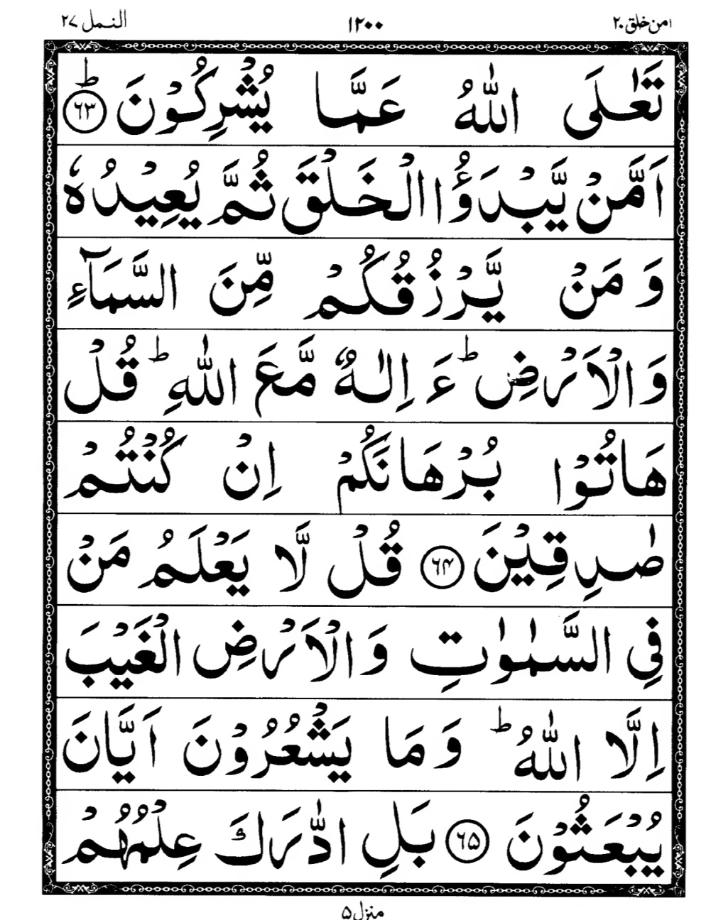 امن خلق ٢٠ ١٢٠٠ النمل ٢٧
تَعٰلَى اللّٰهُ عَمَّا يُشْرِكُوْنَ ؕ ﴿۶۳﴾
اَمَّنْ يَّبْدَؤُا الْخَلْقَ ثُمَّ يُعِيْدُهٗ
وَ مَنْ يَّرْزُقُكُمْ مِّنَ السَّمَآءِ
وَالْاَرْضِ ؕ ءَ اِلٰهٌ مَّعَ اللّٰهِ ؕ قُلْ
هَاتُوْا بُرْهَانَكُمْ اِنْ كُنْتُمْ
صٰدِقِيْنَ ﴿۶۴﴾ قُلْ لَّا يَعْلَمُ مَنْ
فِى السَّمٰوٰتِ وَالْاَرْضِ الْغَيْبَ
اِلَّا اللّٰهُ ؕ وَمَا يَشْعُرُوْنَ اَيَّانَ
يُبْعَثُوْنَ ﴿۶۵﴾ بَلِ ادّٰرَكَ عِلْمُهُمْ
منزل ۵